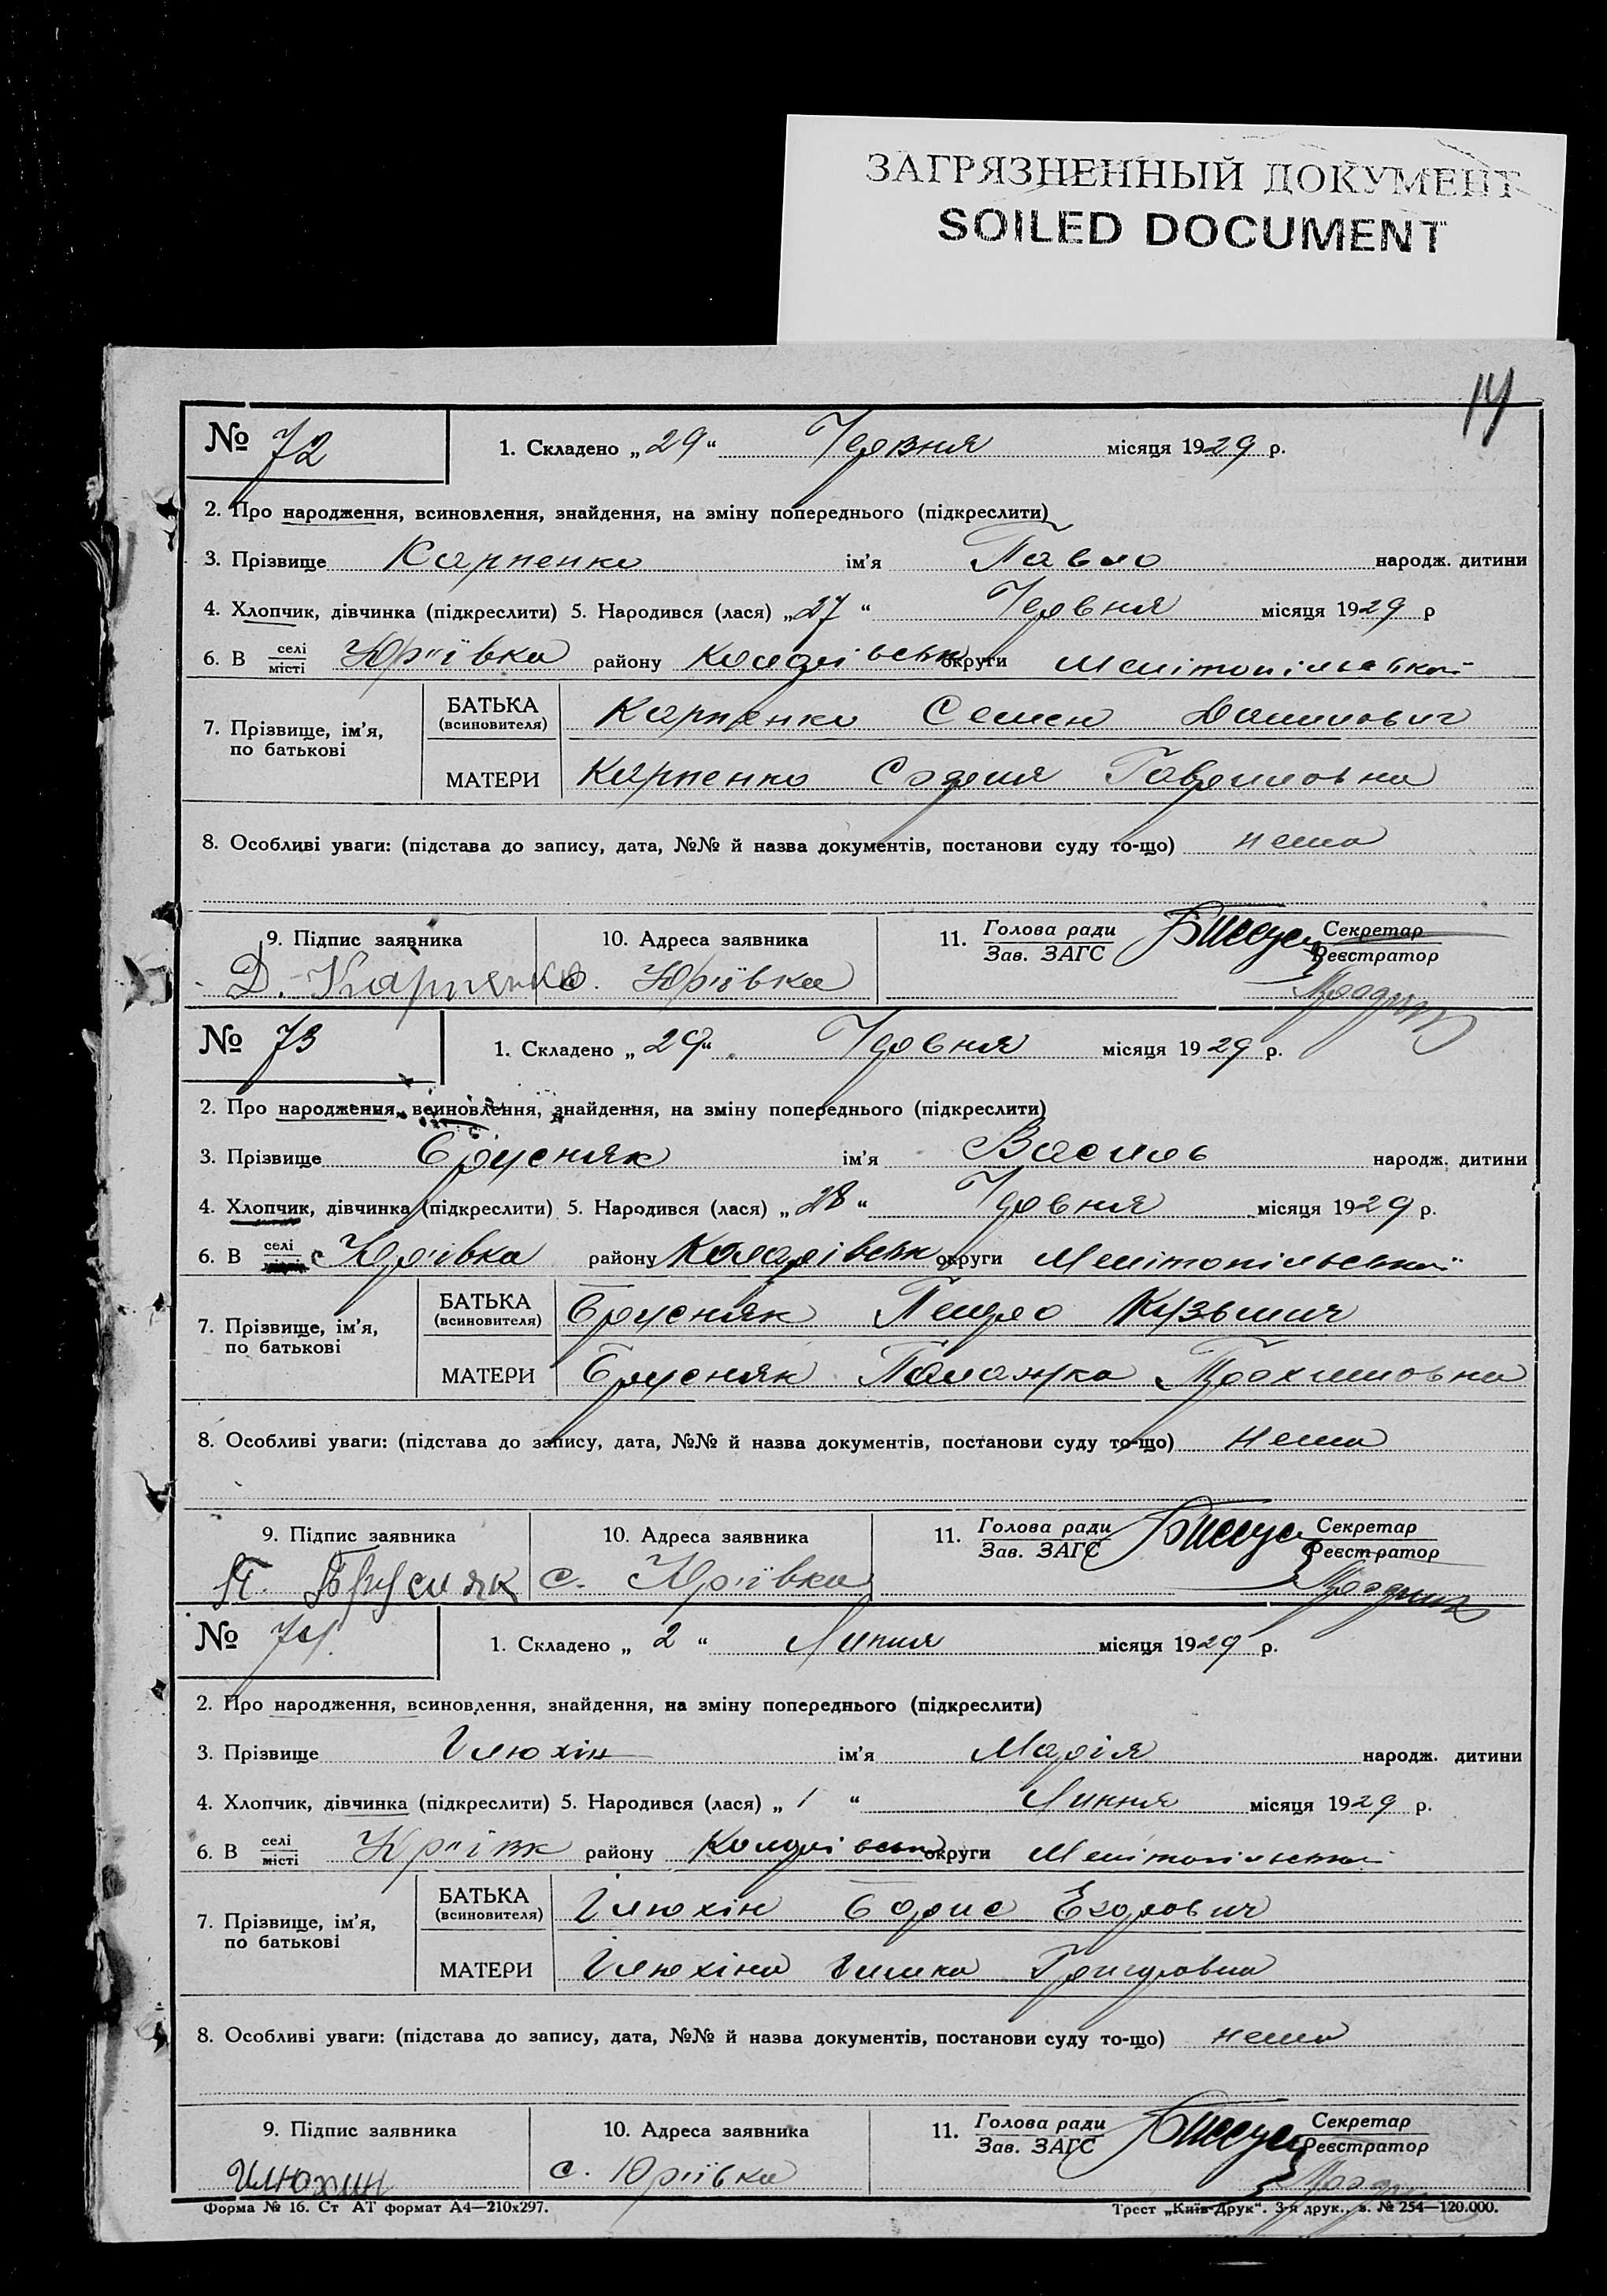 ЗАГРЯЗНЕННЫЙ ДОКУМЕНТ
SOILED DOCUMENT
14
№ 72
1. Складено „29“ Червня місяця 1929 р.
2. Про народження, всиновлення, знайдення, на зміну попереднього (підкреслити)
3. Прізвище Карпенко ім’я Павло народж. дитини
4. Хлопчик, дівчинка (підкреслити) 5. Народився (лася) „27“ Червня місяця 1929 р
6. В селі/місті Юр'ївка району Коларівськ округи Мелітопільської
7. Прізвище, ім’я, по батькові
БАТЬКА (всиновителя) Карпенко Семен Данилович
МАТЕРИ Карпенко София Гавриловна
8. Особливі уваги: (підстава до запису, дата, №№ й назва документів, постанови суду то-що) нема
9. Підпис заявника 10. Адреса заявника 11. Голова ради/Зав. ЗАГС Секретар/Реєстратор
Д. Карпенко с. Юр'ївка
№ 73
1. Складено „29“ Червня місяця 1929 р.
2. Про народження, всиновлення, знайдення, на зміну попереднього (підкреслити)
3. Прізвище Брусняк ім’я Василь народж. дитини
4. Хлопчик, дівчинка (підкреслити) 5. Народився (лася) „28“ Червня місяця 1929 р.
6. В селі/місті с Юр'ївка району Коларівськ округи Мелітопільської
7. Прізвище, ім’я, по батькові
БАТЬКА (всиновителя) Брусняк Петро Кузьмич
МАТЕРИ Брусняк Палажка Трохимовна
8. Особливі уваги: (підстава до запису, дата, №№ й назва документів, постанови суду то-що) нема
9. Підпис заявника 10. Адреса заявника 11. Голова ради/Зав. ЗАГС Секретар/Реєстратор
П. Брусняк с. Юр'ївка
№ 74
1. Складено „2“ Липня місяця 1929 р.
2. Про народження, всиновлення, знайдення, на зміну попереднього (підкреслити)
3. Прізвище Ілюхін ім’я Марія народж. дитини
4. Хлопчик, дівчинка (підкреслити) 5. Народився (лася) „1“ Липня місяця 1929 р.
6. В селі/місті Юр'івк району Коларівськ округи Мелітопільської
7. Прізвище, ім’я, по батькові
БАТЬКА (всиновителя) Ілюхін Борис Егорович
МАТЕРИ Ілюхіна Григоровна
8. Особливі уваги: (підстава до запису, дата, №№ й назва документів, постанови суду то-що) нема
9. Підпис заявника 10. Адреса заявника 11. Голова ради/Зав. ЗАГС Секретар/Реєстратор
Илюхин с. Юр'ївка
Форма № 16. Ст АТ формат А4—210х297. Трест „Київ-Друк“. 3-я друк., з. № 254—120.000.